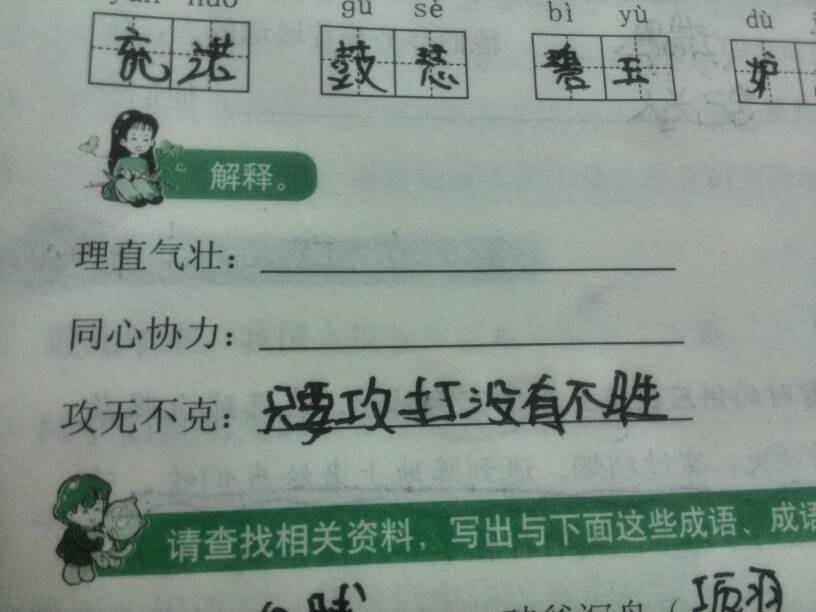 gǔ sè bì yù dù
鼓 瑟 碧 玉 妒
解释。
理直气壮：
同心协力：
攻无不克：只要攻打没有不胜
请查找相关资料，写出与下面这些成语、成语
项羽